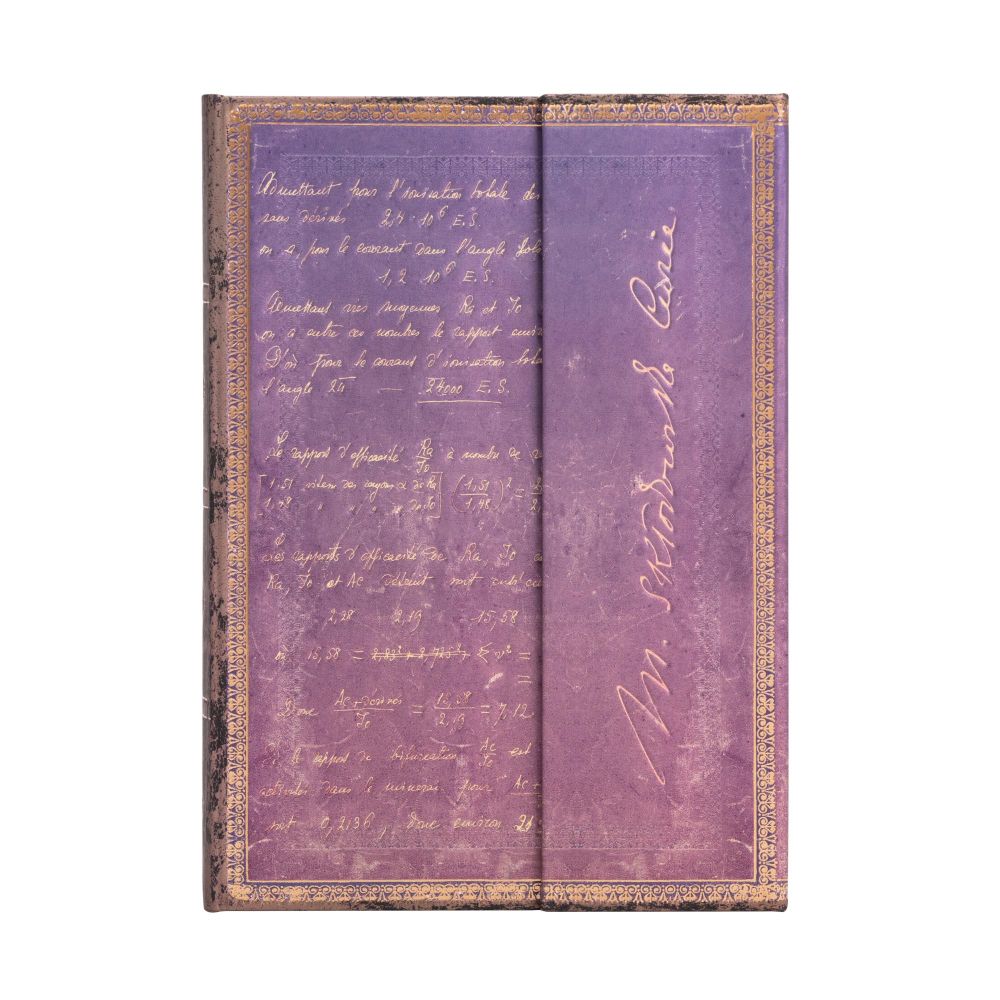 Admettant pour l'ionisation totale des
sans dérivés 2,4 · 10⁶ E.S.
on a, pour le courant dans l'angle
1,2 10⁶ E.S.
Admettant vies moyennes Ra et Io
on a entre ces nombres le rapport
D'où pour le courant d'ionisation
l'angle 2π — 24000 E.S.
Le rapport d'efficacité Ra/Io à nombre de
[1,51 rayons α de Ra
1,48 " " " de Io] (1,51/1,48)² =
rapports d'efficacité de Ra, Io
Ra, Io et Ac
2,28 2,19 15,58
15,58 = 2,83² + 2,725²,
=
Donc Ac+dérivés/Io = 15,58/2,19 = 7,12
le rapport de bifurcation Ac/ est
activités dans le minerai pour Ac +
0,2136, donc environ
M. Skłodowska Curie